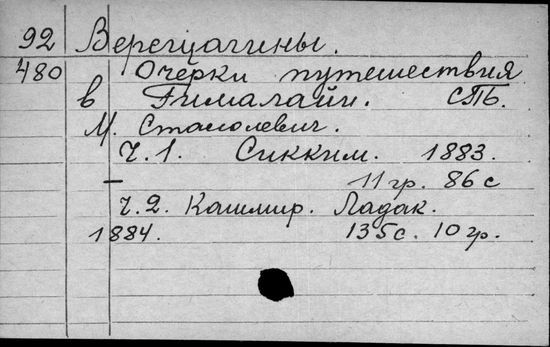 92 Верещагины.
480 Очерки путешествия
в Гималайи. СПБ.
М. Стасюлевич.
Ч.1. Сиккким. 1883.
— 11 гр. 86 с
Ч.2. Кашмир. Ладак.
1884. 135 с. 10 гр.